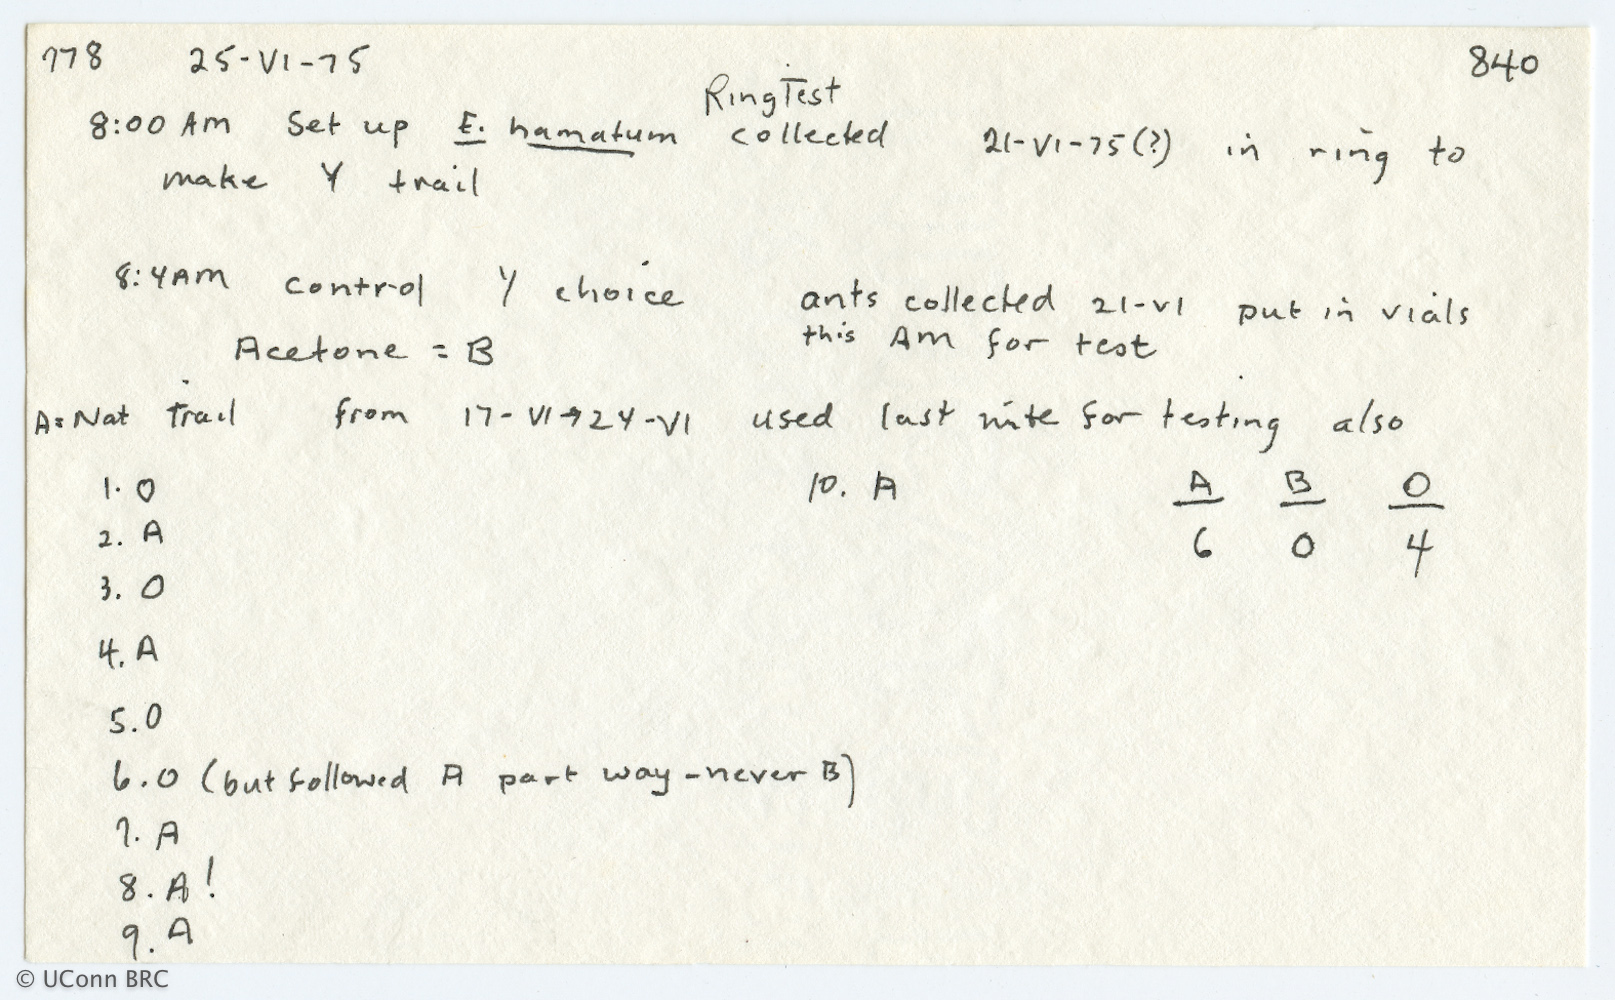 778 25-VI-75 840
Ring Test
8:00 AM Set up E. hamatum collected 21-VI-75(?) in ring to
make Y trail
8:4AM control Y choice
Acetone = B
ants collected 21-VI put in vials
this AM for test
A= Nat trail from 17-VI→24-VI used last nite for testing also
1. O
2. A
3. O
4. A
5. O
6. O (but followed A part way - never B)
7. A
8. A!
9. A
10. A
A B O
6 0 4
© UConn BRC